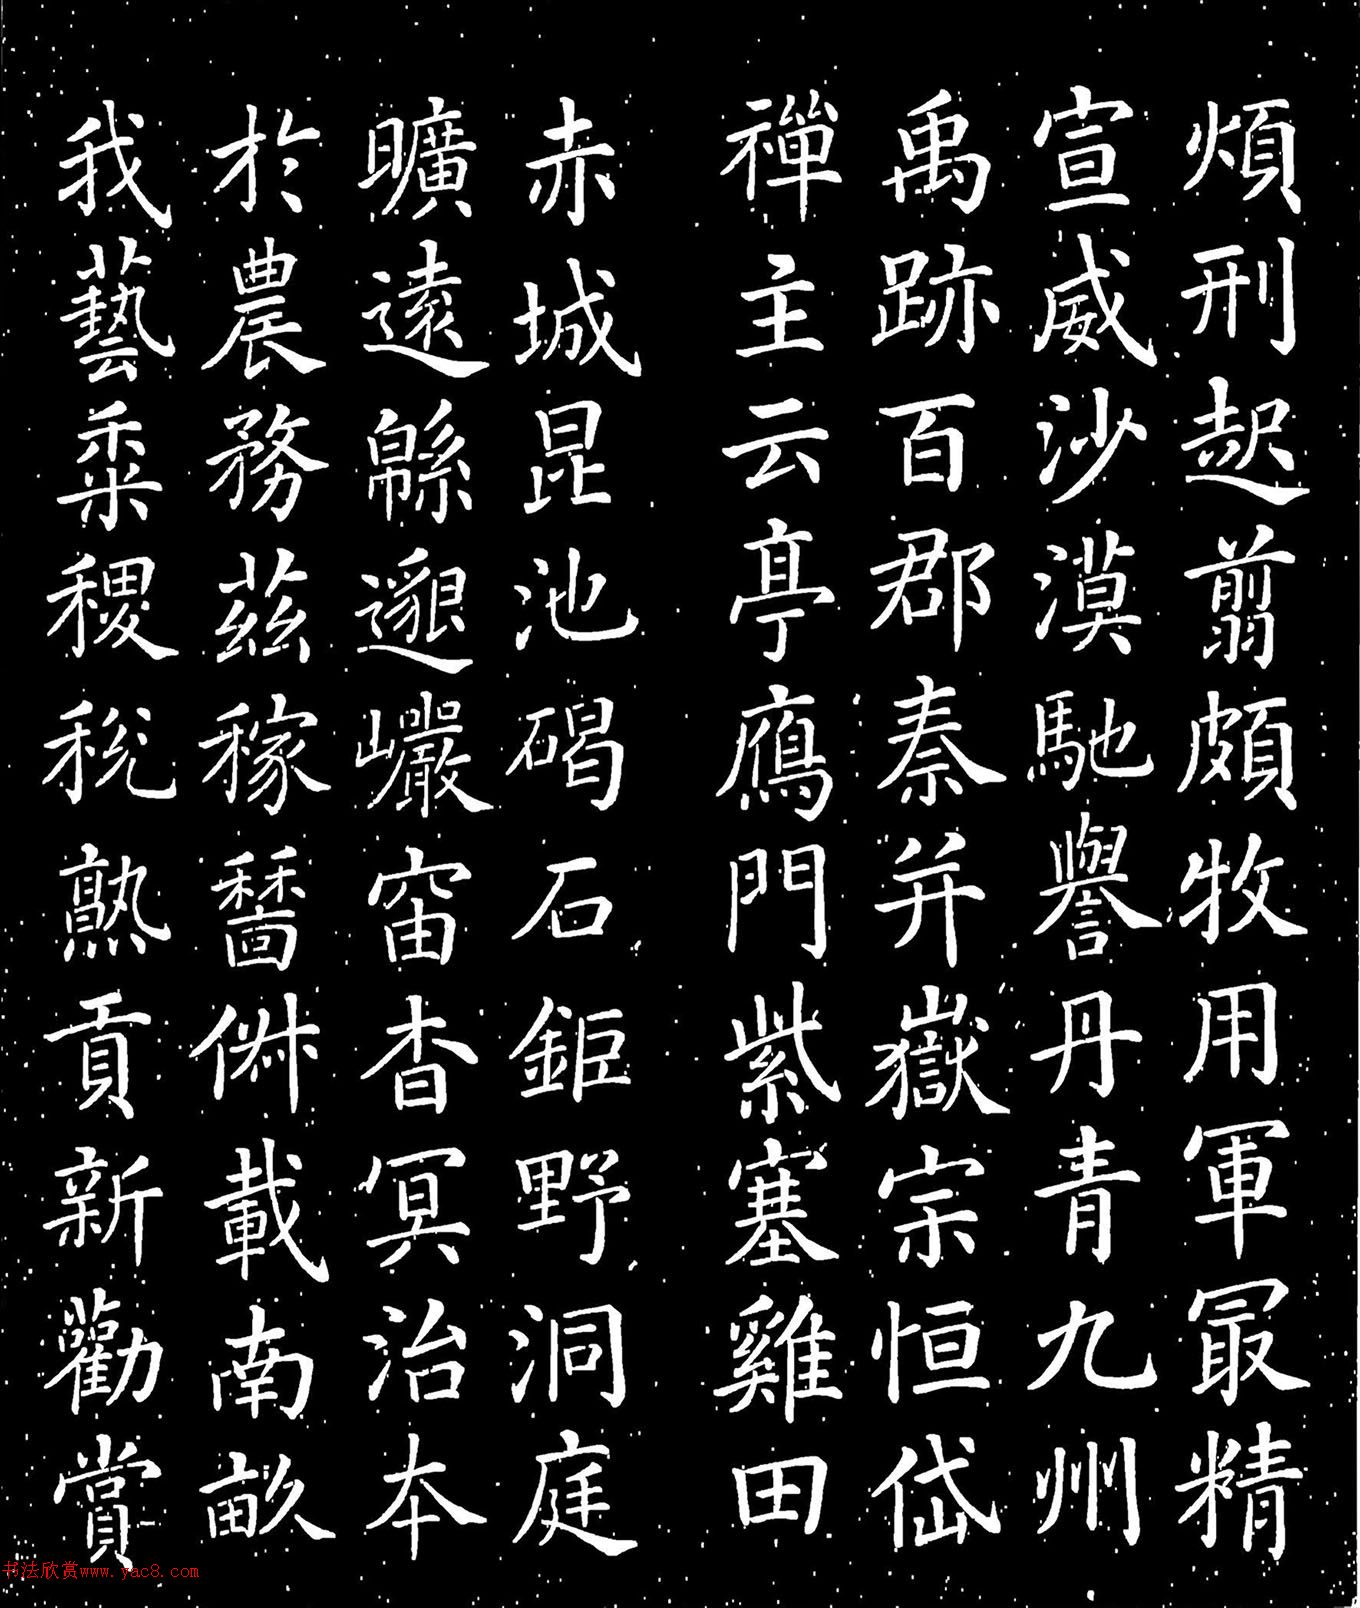 煩刑起翦頗牧用軍冣精
宣威沙漠馳譽丹青九州
禹跡百郡秦并嶽宗恒岱
禪主云亭鴈門紫塞雞田
赤城昆池碣石鉅野洞庭
曠遠緜邈巗宙杳冥治本
於農務茲稼穡俶載南畝
我藝黍稷稅熟貢新勸賞
书法欣赏www.yac8.com